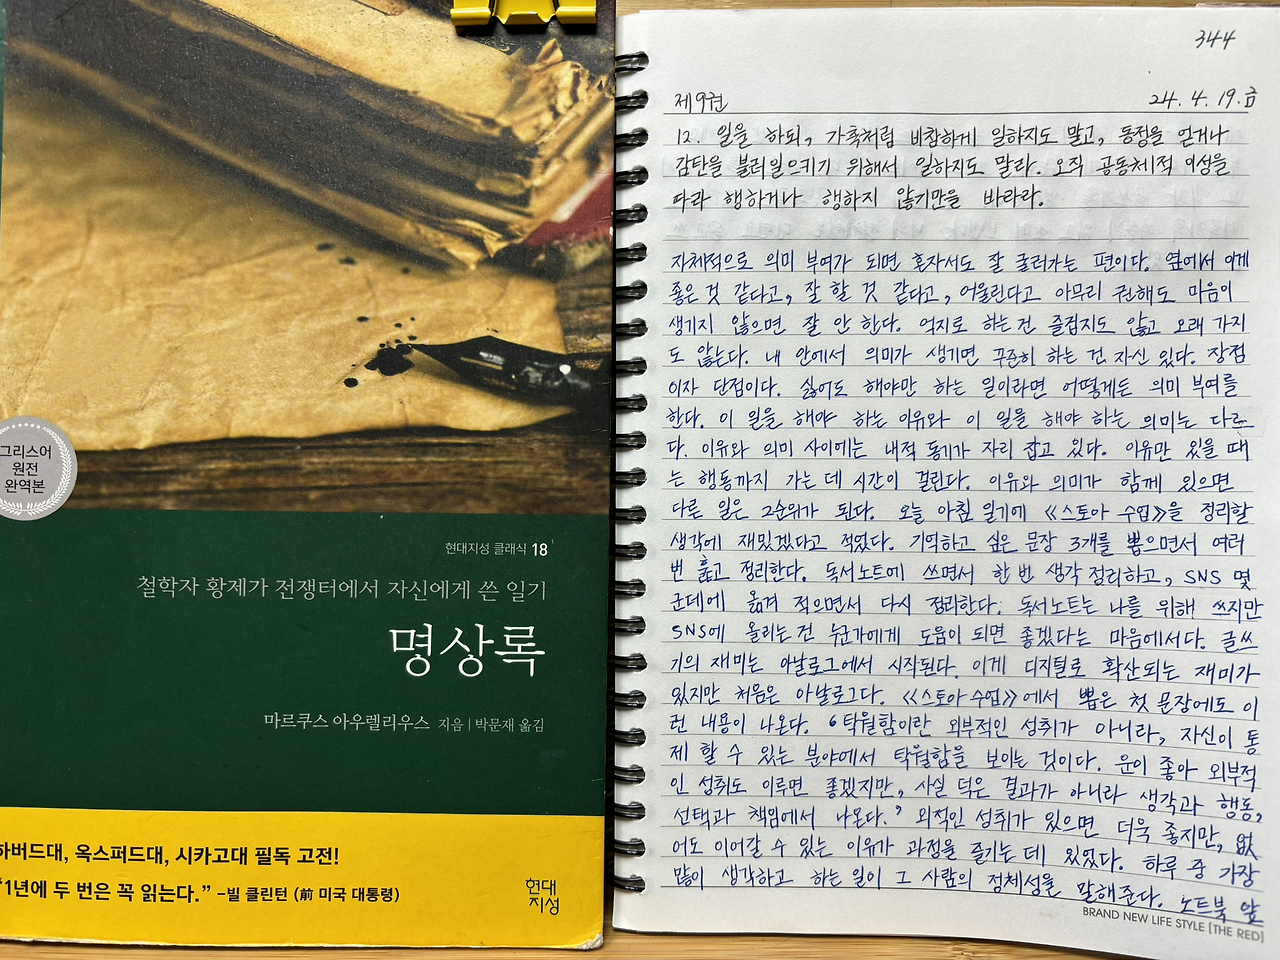 그리스어
원전
완역본
현대지성 클래식 18
철학자 황제가 전쟁터에서 자신에게 쓴 일기
명상록
마르쿠스 아우렐리우스 지음 | 박문재 옮김
하버드대, 옥스퍼드대, 시카고대 필독 고전!
“1년에 두 번은 꼭 읽는다.” –빌 클린턴 (前 미국 대통령)
현대
지성
344
제9권 24. 4. 19. 금
12. 일을 하되, 가혹처럼 비참하게 일하지도 말고, 동정을 얻거나
감탄을 불러일으키기 위해서 일하지도 말라. 오직 공동체적 이성을
따라 행하거나 행하지 않기만을 바라라.
자체적으로 의미 부여가 되면 혼자서도 잘 굴러가는 편이다. 옆에서 이게
좋은 것 같다고, 잘 할 것 같다고, 어울린다고 아무리 권해도 마음이
생기지 않으면 잘 안 한다. 억지로 하는 건 즐겁지도 않고 오래 가지
도 않는다. 내 안에서 의미가 생기면 꾸준히 하는 건 자신 있다. 장점
이자 단점이다. 싫어도 해야만 하는 일이라면 어떻게든 의미 부여를
한다. 이 일을 해야 하는 이유와 이 일을 해야 하는 의미는 다르
다. 이유와 의미 사이에는 내적 동기가 자리 잡고 있다. 이유만 있을 때
는 행동까지 가는 데 시간이 걸린다. 이유와 의미가 함께 있으면
다른 일은 2순위가 된다. 오늘 아침 일기에 《스토아 수업》을 정리할
생각에 재밌겠다고 적었다. 기억하고 싶은 문장 3개를 뽑으면서 여러
번 훑고 정리한다. 독서노트에 쓰면서 한 번 생각 정리하고, SNS 몇
군데에 옮겨 적으면서 다시 정리한다. 독서노트는 나를 위해 쓰지만
SNS에 올리는 건 누군가에게 도움이 되면 좋겠다는 마음에서다. 글쓰
기의 재미는 아날로그에서 시작된다. 이게 디지털로 확산되는 재미가
있지만 처음은 아날로그다. 《스토아 수업》에서 뽑은 첫 문장에도 이
런 내용이 나온다. ‘탁월함이란 외부적인 성취가 아니라, 자신이 통
제 할 수 있는 분야에서 탁월함을 보이는 것이다. 운이 좋아 외부적
인 성취도 이루면 좋겠지만, 사실 덕은 결과가 아니라 생각과 행동,
선택과 책임에서 나온다.’ 외적인 성취가 있으면 더욱 좋지만, 없
어도 이어갈 수 있는 이유가 과정을 즐기는 데 있었다. 하루 중 가장
많이 생각하고 하는 일이 그 사람의 정체성을 말해준다. 노트북 앞
BRAND NEW LIFE STYLE [THE RED]